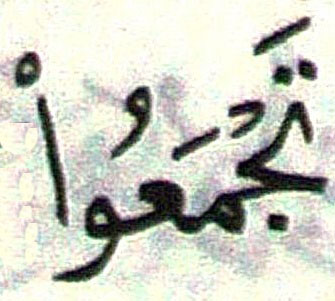 تَجۡمَعُوا۟